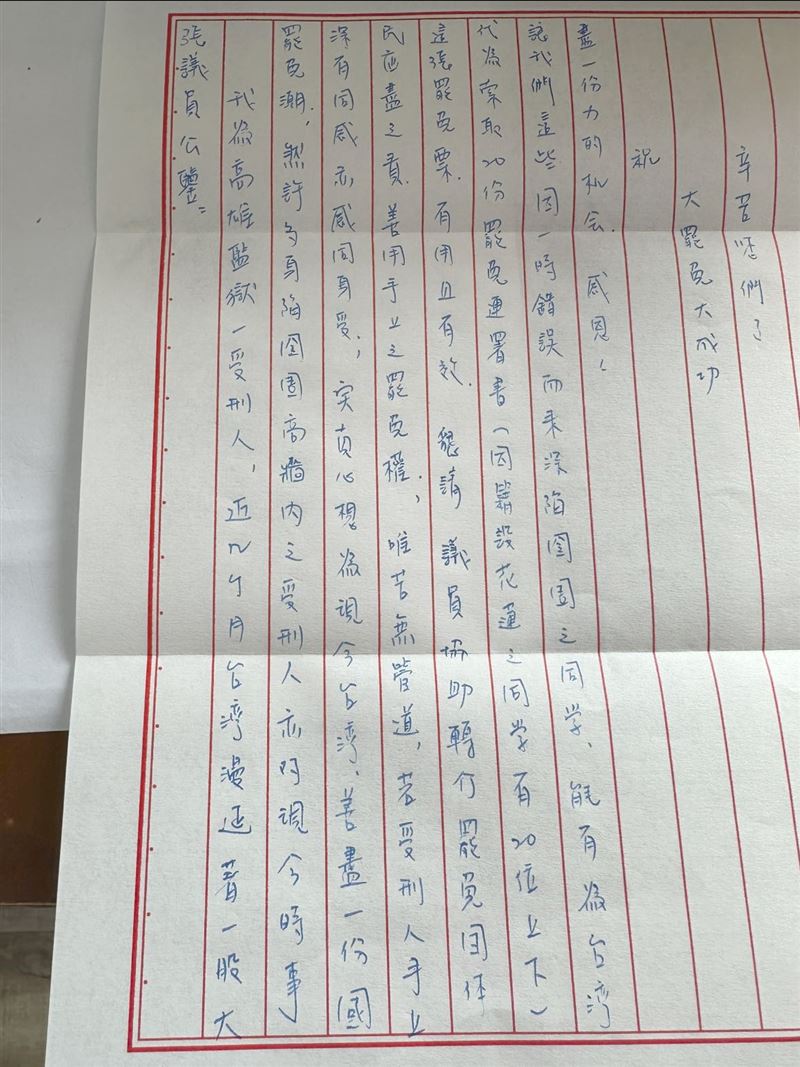 張議員公鑒：
我為高雄監獄一受刑人，近几个月台湾漫延著一股大
罷免潮，然許多身陷囹圄高牆內之受刑人亦对現今時事
深有同感亦感同身受；实真心想為現今台湾、善盡一份國
民应盡之責.善用手上之罷免權；唯苦無管道，若受刑人手上
這張罷免票.有用且有效.懇請 議員協助轉介罷免团体
代為索取20份罷免連署書(因籍設花蓮之同学有20位上下)
讓我們這些因一時錯誤而来深陷囹圄之同学、能有為台湾
盡一份力的机会.感恩！
祝
大罷免大成功
辛苦您們了